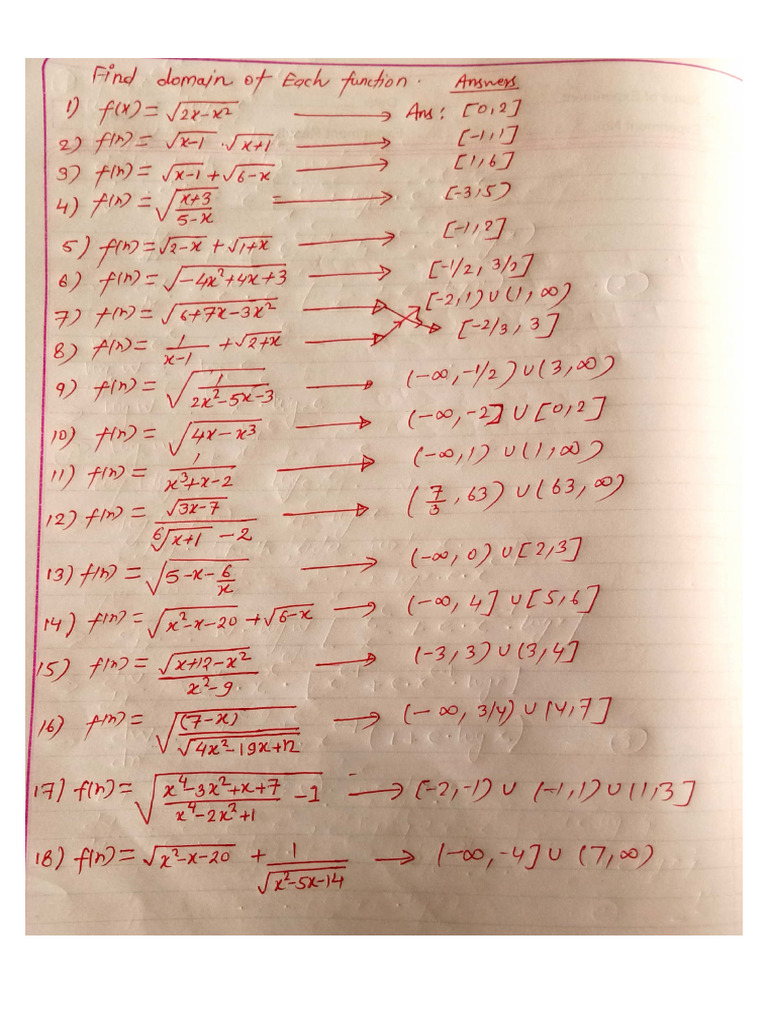 Find domain of Each function. Answers
1) f(x) = √(2x-x²) → Ans: [0,2]
2) f(n) = √(x-1) · √(x+1) → [-1,1]
3) f(n) = √(x-1) + √(6-x) → [1,6]
4) f(n) = √((x+3)/(5-x)) = → [-3,5)
5) f(n) = √(2-x) + √(1+x) → [-1,2]
6) f(n) = √(-4x²+4x+3) → [-1/2, 3/2]
7) f(n) = √(6+7x-3x²) → [-2,1) ∪ (1, ∞)
8) f(n) = 1/(x-1) + √(2+x) → [-2/3, 3]
9) f(n) = √(1/(2x²-5x-3)) → (-∞, -1/2) ∪ (3, ∞)
10) f(n) = √(4x-x³) → (-∞, -2] ∪ [0,2]
11) f(n) = 1/(x³+x-2) → (-∞, 1) ∪ (1, ∞)
12) f(n) = √(3x-7)/(⁶√(x+1) - 2) → (7/3, 63) ∪ (63, ∞)
13) f(n) = √(5-x-6/x) → (-∞, 0) ∪ [2,3]
14) f(n) = √(x²-x-20) + √(6-x) → (-∞, 4] ∪ [5,6]
15) f(n) = √(x+12-x²)/(x²-9) → (-3, 3) ∪ (3, 4]
16) f(n) = √((7-x)/√(4x²-19x+12)) → (-∞, 3/4) ∪ (4,7]
17) f(n) = √((x⁴-3x²+x+7)/(x⁴-2x²+1) - 1) → [-2,-1) ∪ (-1,1) ∪ (1,3]
18) f(n) = √(x²-x-20) + 1/√(x²-5x-14) → (-∞, -4] ∪ (7, ∞)